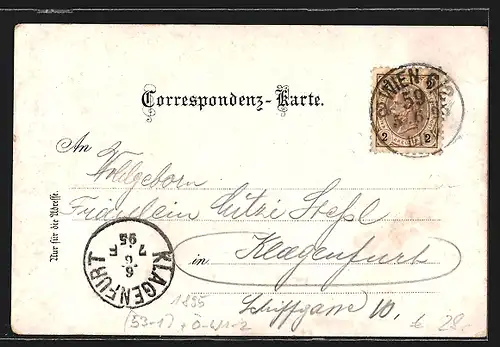 Correspondenz-Karte.
WIEN
59
2 2
An
Wohlgeborn
Fräulein Mitzi Stessl
in Klagenfurt
Schiffgasse 10.
Nur für die Adresse.
KLAGENFURT
6. 6
7 95
F
1895
(53-1)
28.-